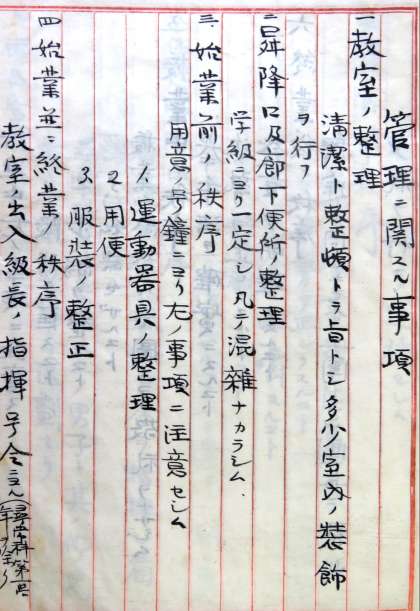 管理ニ関スル事項
一教室ノ整理
清潔ト整頓トヲ旨トシ多少室内ノ装飾
ヲ行フ
二昇降口及廊下便所ノ整理
学級ニヨリ一定シ凡テ混雑ナカラシム、
三始業前ノ秩序
用意ノ号鐘ニヨリ左ノ事項ニ注意セシム
1、運動器具ノ整理
2、用便
3、服装ノ整正
四始業並ニ終業ノ秩序
教室ノ出入級長ノ指揮号令ニヨル(尋常科第一